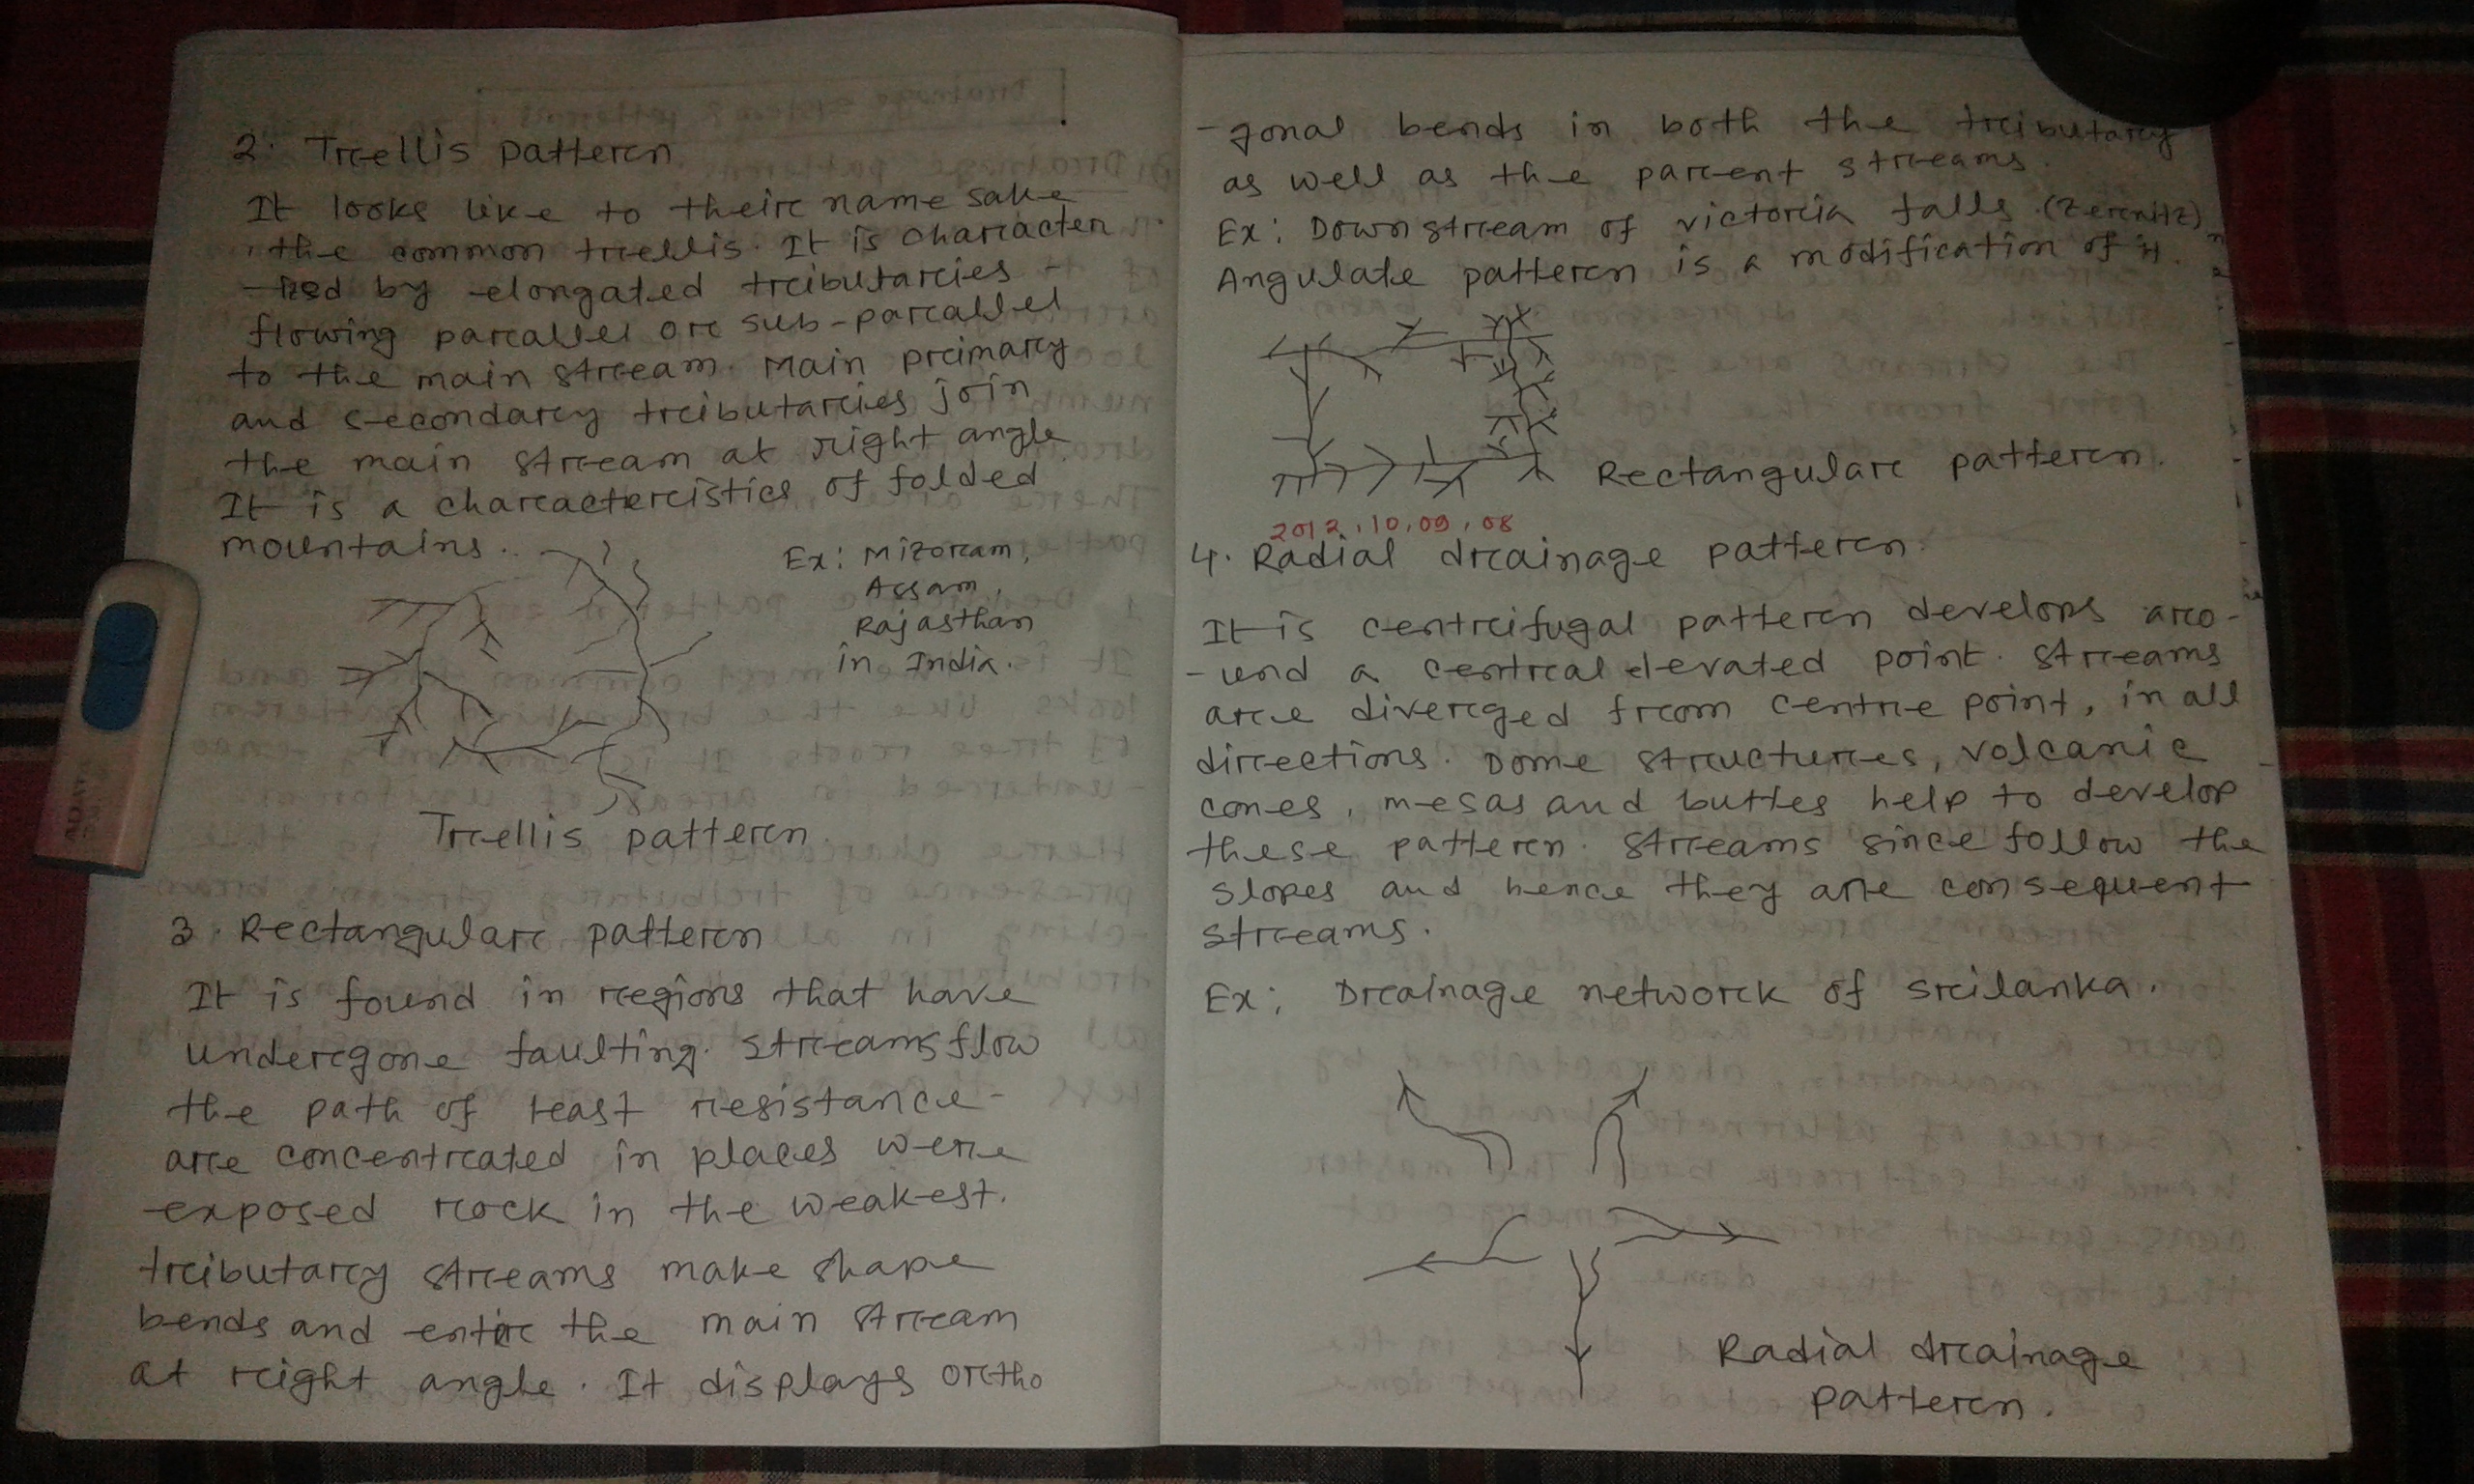 2. Trellis pattern
It looks like to their name sake
the common trellis. It is character
-ized by elongated tributaries -
flowing parallel or sub-parallel
to the main stream. Main primary
and secondary tributaries join
the main stream at right angle.
It is a characteristics of folded
mountains.
Ex: Mizoram,
Assam,
Rajasthan
in India.
Trellis pattern.
3. Rectangular pattern
It is found in regions that have
undergone faulting. Streams flow
the path of least resistance-
are concentrated in places were
exposed rock in the weakest.
tributary streams make shape
bends and enter the main stream
at right angle. It displays ortho
-gonal bends in both the tributary
as well as the parent streams.
Ex: Downstream of victoria falls. (Zernitz)
Angulate pattern is a modification of it.
Rectangular pattern.
2012, 10, 09, 08
4. Radial drainage pattern.
It is centrifugal pattern develops aro-
-und a central elevated point. Streams
are diverged from centre point, in all
directions. Dome structures, volcanic
cones, mesas and buttes help to develop
these pattern. Streams since follow the
slopes and hence they are consequent
streams.
Ex: Drainage network of srilanka.
Radial drainage
pattern.